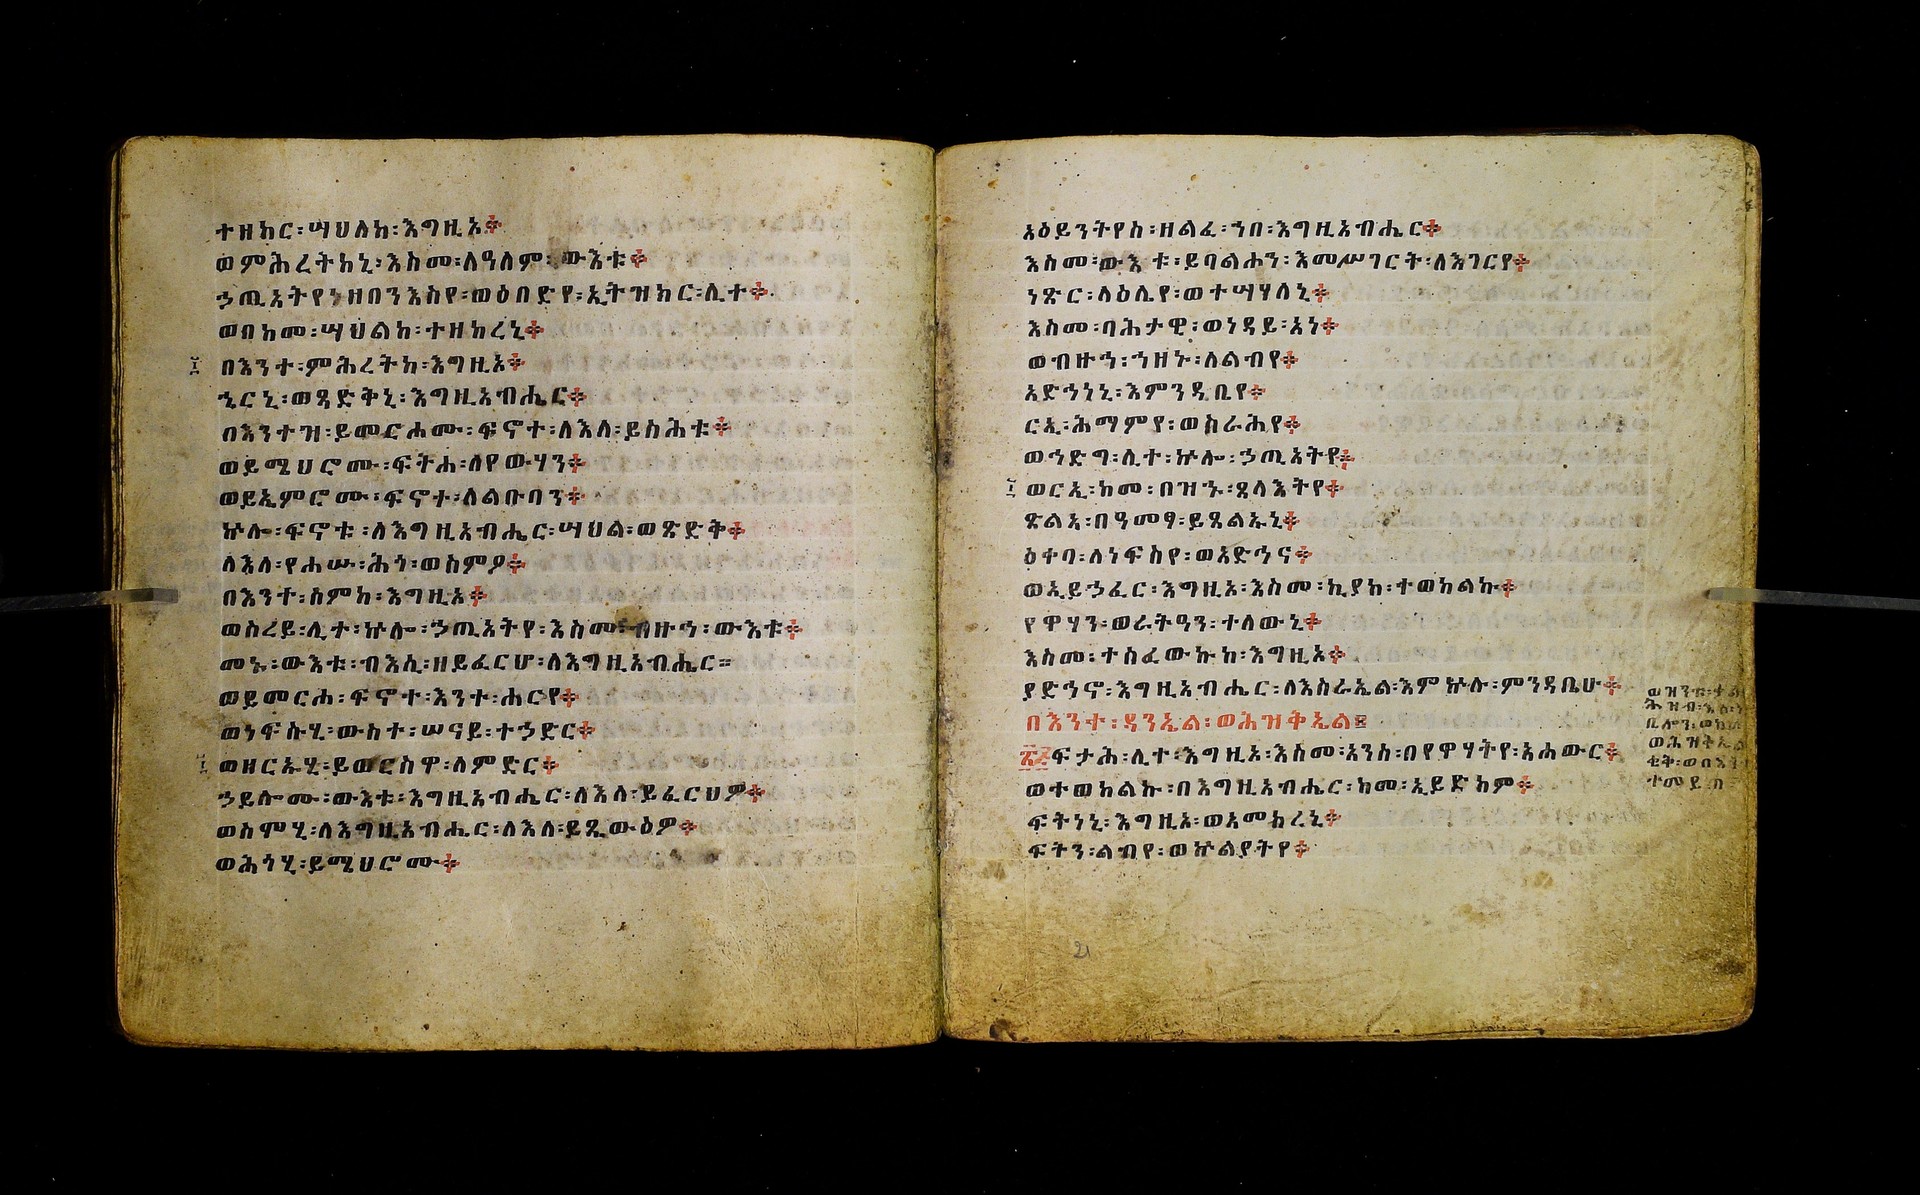 ተዘከር፡ሣህለከ፡እግዚአ፨
ወምሕረትከኒ፡እስመ፡ለዓለም፡ውእቱ፨
ኃጢአትየ፡ዘበንእስየ፡ወዕበድየ፡ኢትዝክር፡ሊተ፨
ወበከመ፡ሣህልከ፡ተዘከረኒ፨
በእንተ፡ምሕረትከ፡እግዚአ፨
ኄርኒ፡ወጻድቅኒ፡እግዚአብሔር፨
በእንተዝ፡ይመርሐሙ፡ፍኖተ፡ለእለ፡ይስሕቱ፨
ወይሜህሮሙ፡ፍትሐ፡ለየውሃን፨
ወይኤምሮሙ፡ፍኖተ፡ለልቡባን፨
ኵሉ፡ፍኖቱ፡ለእግዚአብሔር፡ሣህል፡ወጽድቅ፨
ለእለ፡የሐሡ፡ሕጎ፡ወስምዖ፨
በእንተ፡ስምከ፡እግዚአ፨
ወስረይ፡ሊተ፡ኵሎ፡ኃጢአትየ፡እስመ፡ብዙኅ፡ውእቱ፨
መኑ፡ውእቱ፡ብእሲ፡ዘይፈርሆ፡ለእግዚአብሔር።
ወይመርሐ፡ፍኖተ፡እንተ፡ሐርየ፨
ወነፍሱሂ፡ውስተ፡ሠናይ፡ተኃድር፨
ወዘርኡሂ፡ይወርስዋ፡ለምድር፨
ኃይሎሙ፡ውእቱ፡እግዚአብሔር፡ለእለ፡ይፈርህዎ፨
ወስሞሂ፡ለእግዚአብሔር፡ለእለ፡ይጼውዕዎ፨
ወሕጎሂ፡ይሜህሮሙ፨
አዕይንትየስ፡ዘልፈ፡ኀበ፡እግዚአብሔር፨
እስመ፡ውእቱ፡ይባልሖን፡እመሥገርት፡ለእገርየ፨
ነጽር፡ላዕሌየ፡ወተሣሃለኒ፨
እስመ፡ባሕታዊ፡ወነዳይ፡አነ፨
ወብዙኅ፡ኀዘኑ፡ለልብየ፨
አድኅነኒ፡እምንዳቤየ፨
ርኢ፡ሕማምየ፡ወስራሕየ፨
ወኅድግ፡ሊተ፡ኵሎ፡ኃጢአትየ፨
ወርኢ፡ከመ፡በዝኁ፡ጸላእትየ፨
ጽልአ፡በዓመፃ፡ይጸልኡኒ፨
ዕቀባ፡ለነፍስየ፡ወአድኅና፨
ወኢይኃፈር፡እግዚአ፡እስመ፡ኪያከ፡ተወከልኩ፨
የዋሃን፡ወራትዓን፡ተለውኒ፨
እስመ፡ተሰፈውኩከ፡እግዚአ፨
ያድኅኖ፡እግዚአብሔር፡ለእስራኤል፡እምኵሉ፡ምንዳቤሁ፨
በእንተ፡ዳንኤል፡ወሕዝቅኤል፨
፳፭ፍታሕ፡ሊተ፡እግዚአ፡እስመ፡አንሰ፡በየዋሃትየ፡አሐውር፨
ወተወከልኩ፡በእግዚአብሔር፡ከመ፡ኢይድከም፨
ፍትነኒ፡እግዚአ፡ወአመክረኒ፨
ፍትን፡ልብየ፡ወኵልያትየ፨
21